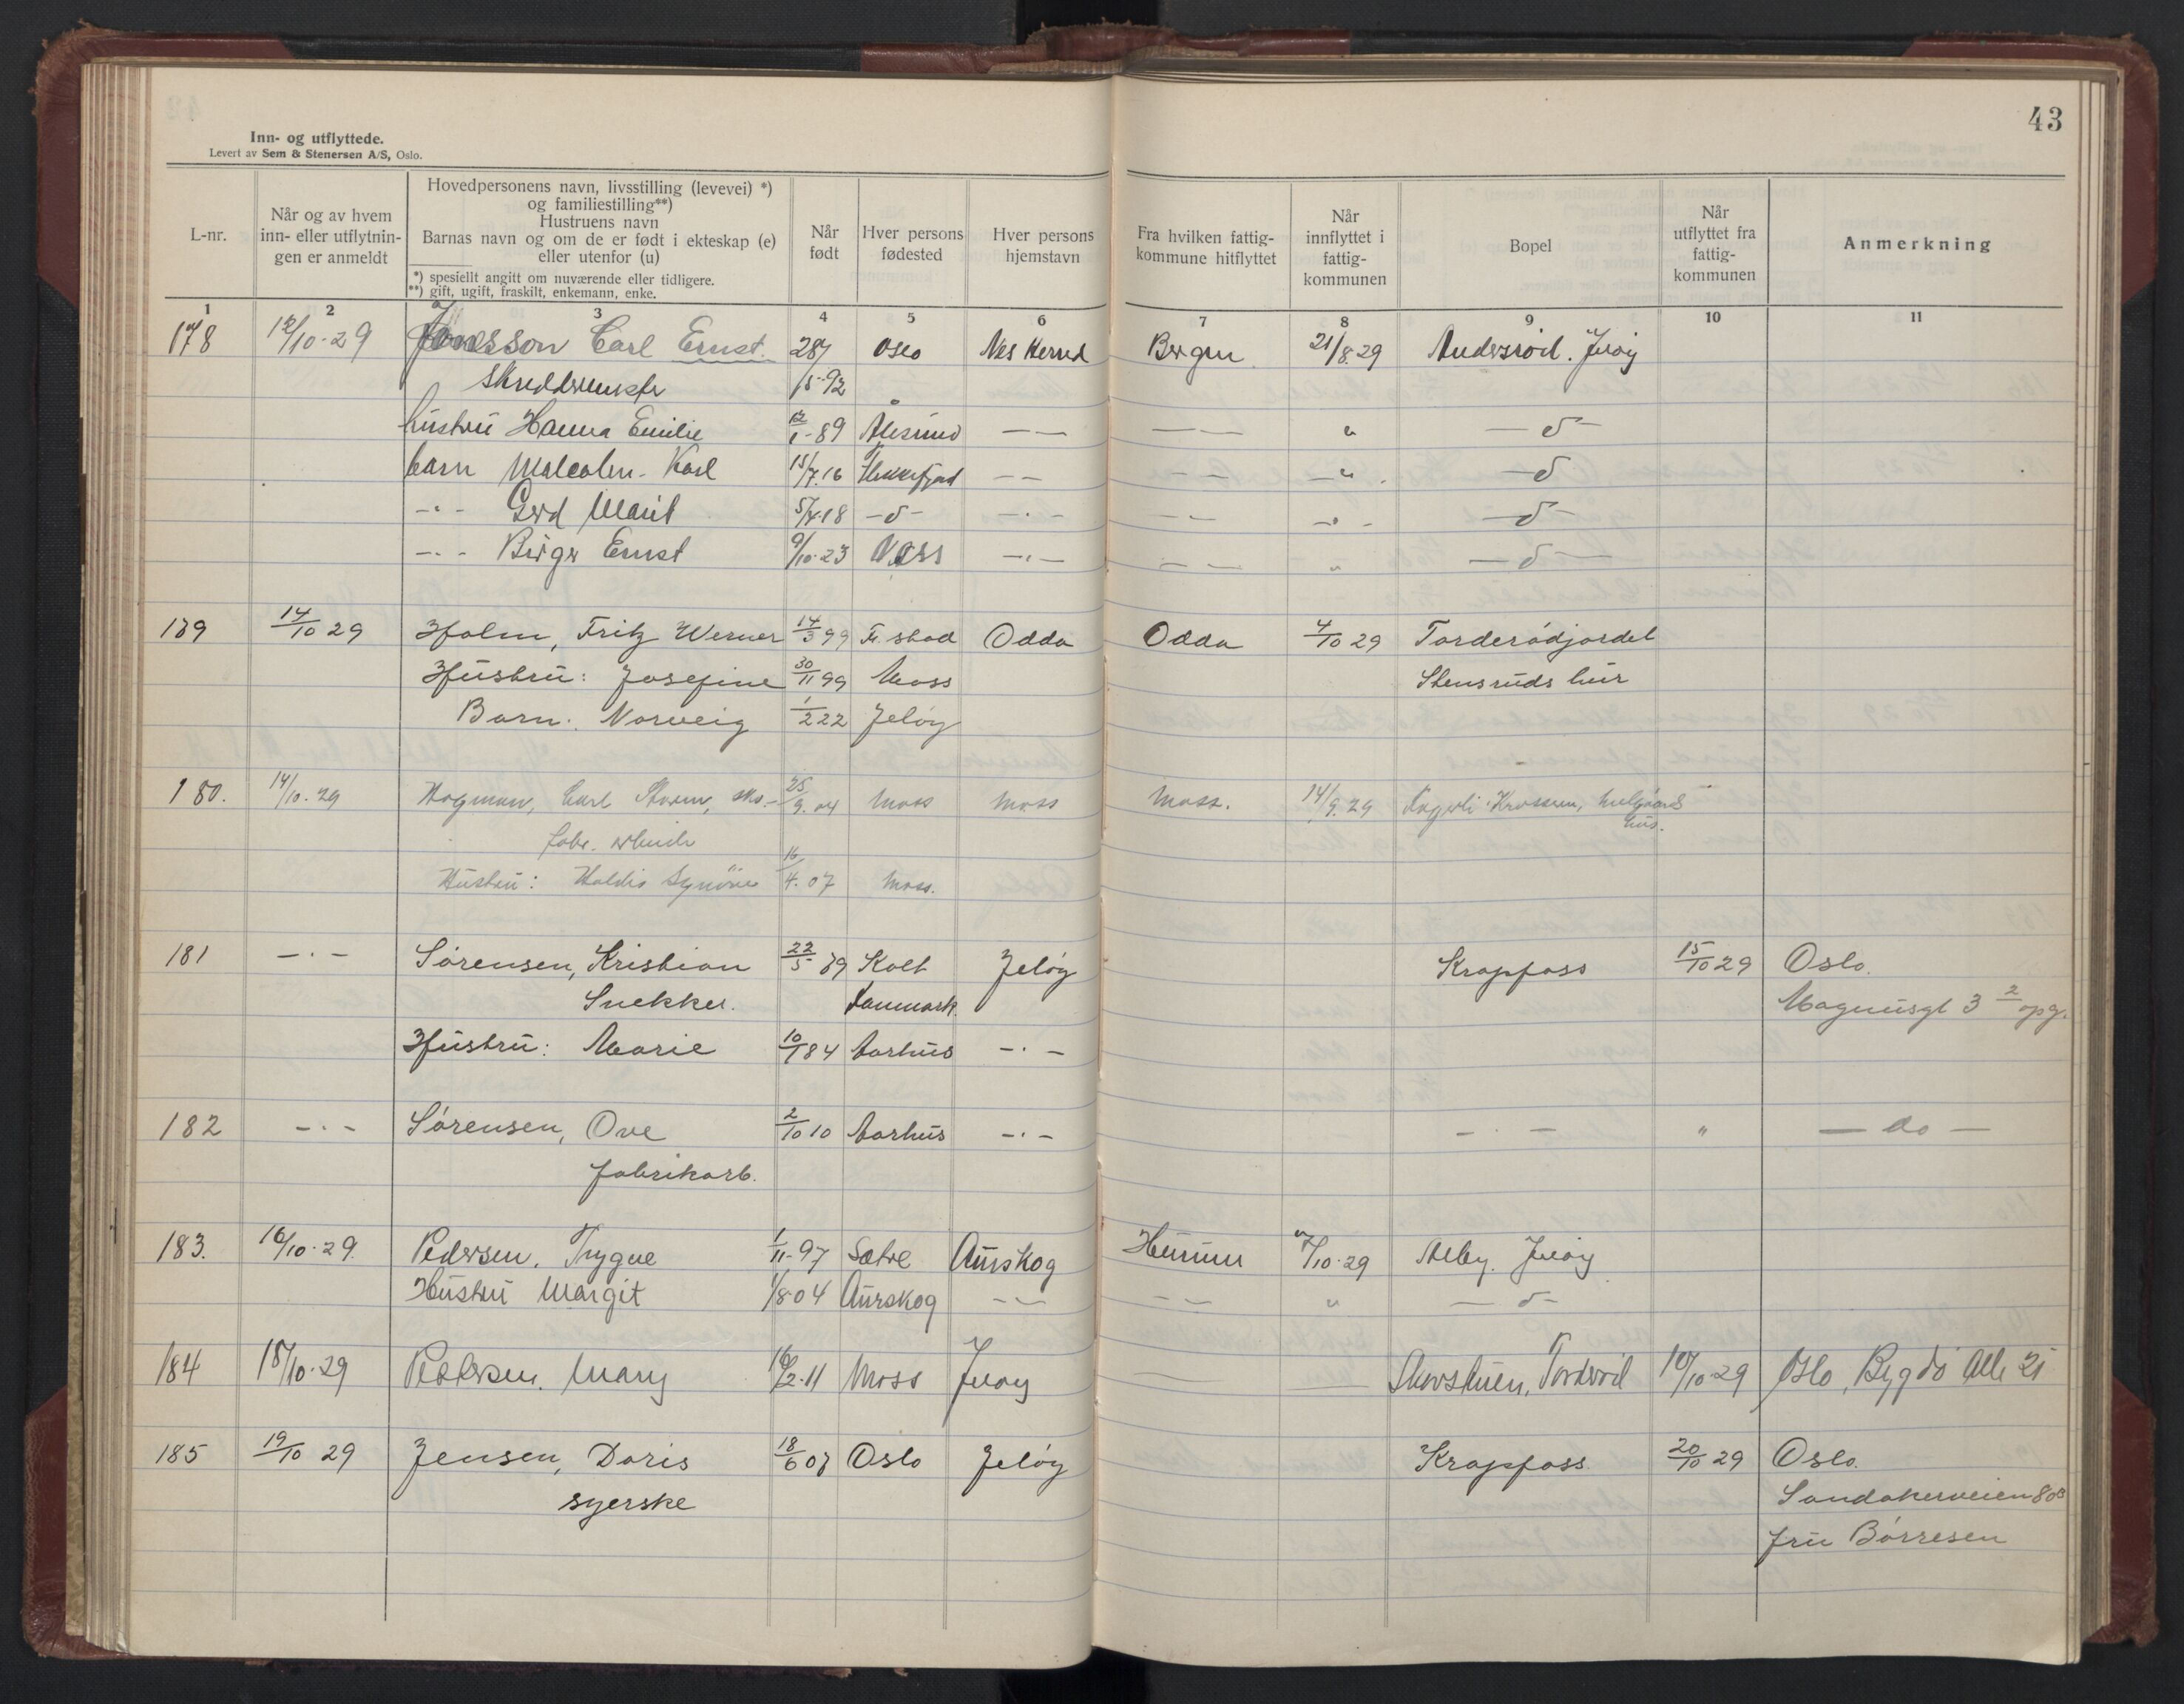 43
Inn- og utflyttede.
Levert av Sem & Stenersen A/S, Oslo.
L-nr.
Når og av hvem inn- eller utflytnin- gen er anmeldt
Hovedpersonens navn, livsstilling (levevei) *)
og familiestilling**)
Hustruens navn
Barnas navn og om de er født i ekteskap (e)
eller utenfor (u)
*) spesiellt angitt om nuværende eller tidligere.
**) gift, ugift, fraskilt, enkemann, enke.
Når født
Hver persons fødested
Hver persons hjemstavn
Fra hvilken fattig- kommune hitflyttet
Når innflyttet i fattig- kommunen
Bopel
Når utflyttet fra fattig- kommunen
Anmerkning
1 2 3 4 5 6 7 8 9 10 11
178 12/10-29 Carl Ernst. 28/ Oslo Bergen 21/8.29 Jeløy
/5-92
hustru Hanna Emilie 12/1-89 Ålesund — — — — " — d —
barn Malcolm-Karl 15/7.16 — — — — — " — d
-"- Gerd Marit 5/4.18 — d — — " — — — - " - — d —
-"- Birger Ernst 9/10-23 Voss — " — — — " — d —
179 14/10 29 Holm, Fritz Werner 14/3 99 Fr.stad Odda Odda 4/10 29 Torderødjordet
Hustru: Josefine 30/11 99 Moss Stensruds hus
Barn: Norveig 1/2 22 Jeløy
180. 14/10.29 Hagman, Carl sko- 25/9.04 Moss Moss Moss. 14/9.29
fabr. arbeider hus.
Hustru: Haldis Synøve 16/4.07 Moss.
181 — " — Sørensen, Kristian 22/5 79 Kolt Jeløy Krapfoss 15/10 29 Oslo.
Snekker. Danmark. Magnusgt 3 2/opg.
Hustru: Marie 10/1 84 Aarhus — " —
182 — " — Sørensen, Ove 2/10 10 Aarhus — " — — " — " — do —
fabrikarb.
183. 16/10-29. Pedersen, Trygve 1/11-97 Sætre Aurskog Hurum 7/10-29 Alby. Jeløy
Hustru Margit 1/8-04 Aurskog — — — — " — d —
184 18/10-29 Pedersen. Mary 16/2-11 Moss Jeløy — — 18/10-29 Oslo, Bygdø Alle 21
185 19/10 29 Jensen, Doris 18/6 07 Oslo Jeløy Krapfoss. 20/10 29 Oslo.
syerske Sandakerveien 80B
Fru Børresen